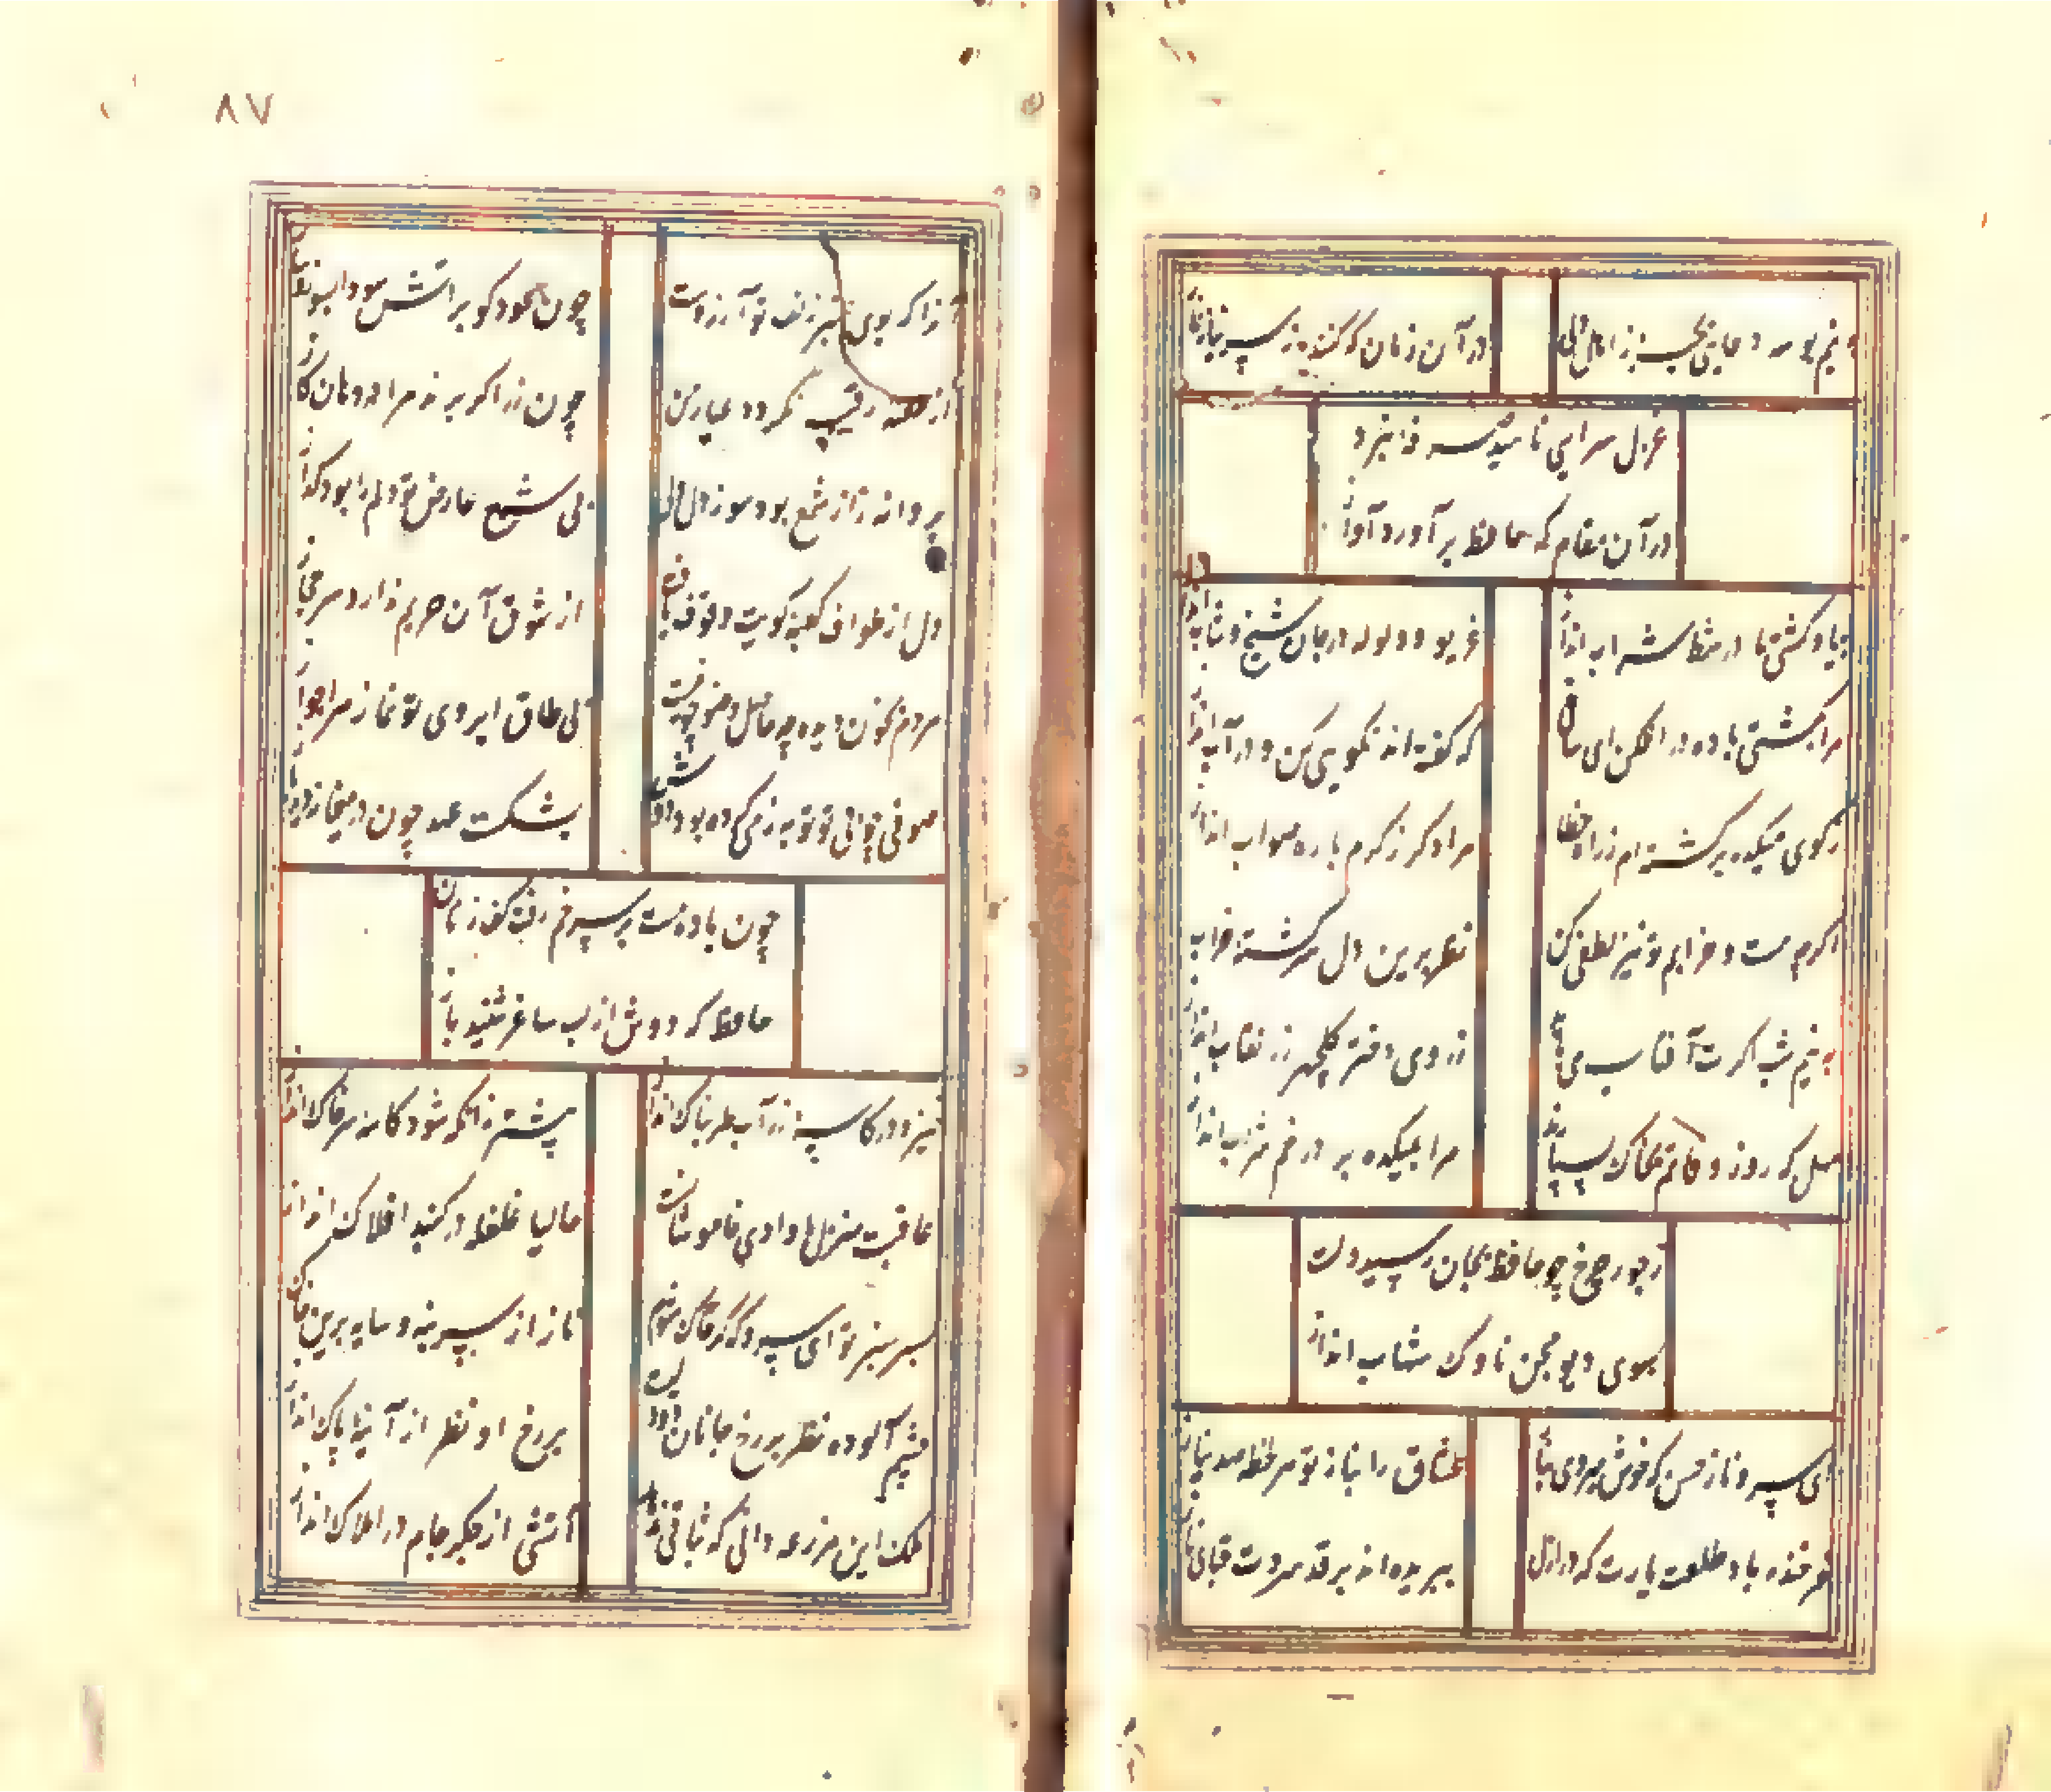 نیم بوسه دعایی بخر ز اهل دلی
در آن زمان که کنند از سر نیاز نماز
غزل سرایی ناهید صرفه نبرد
در آن مقام که حافظ بر آورد آواز
بیا و کشتی ما در شط شراب انداز
غریو و ولوله در جان شیخ و شاب انداز
مرا بکشتی باده در افکن ای ساقی
که گفته اند نکویی کن و در آب انداز
ز کوی میکده برگشته ام ز راه خطا
مرا دگر ز کرم با ره صواب انداز
اگرچه مست و خرابم تو نیز لطفی کن
نظر برین دل سرگشته خراب انداز
به نیم شب اگرت آفتاب می باید
ز روی دختر گلچهر رز نقاب انداز
مهل که روز وفاتم بخاک بسپارند
مرا بمیکده بر در خم شراب انداز
ز جور چرخ چو حافظ بجان رسید دلت
بسوی دیو محن ناوک شهاب انداز
ای سرو ناز حسن که خوش میروی بناز
عشاق را بناز تو هر لحظه صد نیاز
فرخنده باد طلعت یارت که در ازل
ببریده اند بر قد سروت قبای ناز
۸۷
آنرا که بوی عنبر زلف تو آرزوست
چون عود گو بر آتش سودا بسوز و ساز
از طعنه رقیب نگردد عیار من
چون زر اگر برند مرا در دهان گاز
پروانه را ز شمع بود سوز دل ولی
بی شمع عارض تو دلم را بود گداز
دل از طواف کعبه کویت وقوف یافت
از شوق آن حریم ندارد سر حجاز
هر دم بخون دیده چه حاصل وضو چو نیست
بی طاق ابروی تو نماز مرا جواز
صوفی که بی تو توبه ز می کرده بود دوش
بشکست عهد چون در میخانه دید باز
چون باده مست بر سر خم رفت کف زنان
حافظ که دوش از لب ساغر شنید راز
خیز و در کاسه زر آب طربناک انداز
پیشتر زانکه شود کاسه سر خاک انداز
عاقبت منزل ما وادی خاموشانست
حالیا غلغله در گنبد افلاک انداز
بسر سبز تو ای سرو که گر خاک شوم
ناز از سر بنه و سایه برین خاک انداز
چشم آلوده نظر بر رخ جانان
بر رخ او نظر از آینه پاک انداز
ملک این مزرعه دانی که ثباتی ندهد
آتشی از جگر جام در املاک انداز